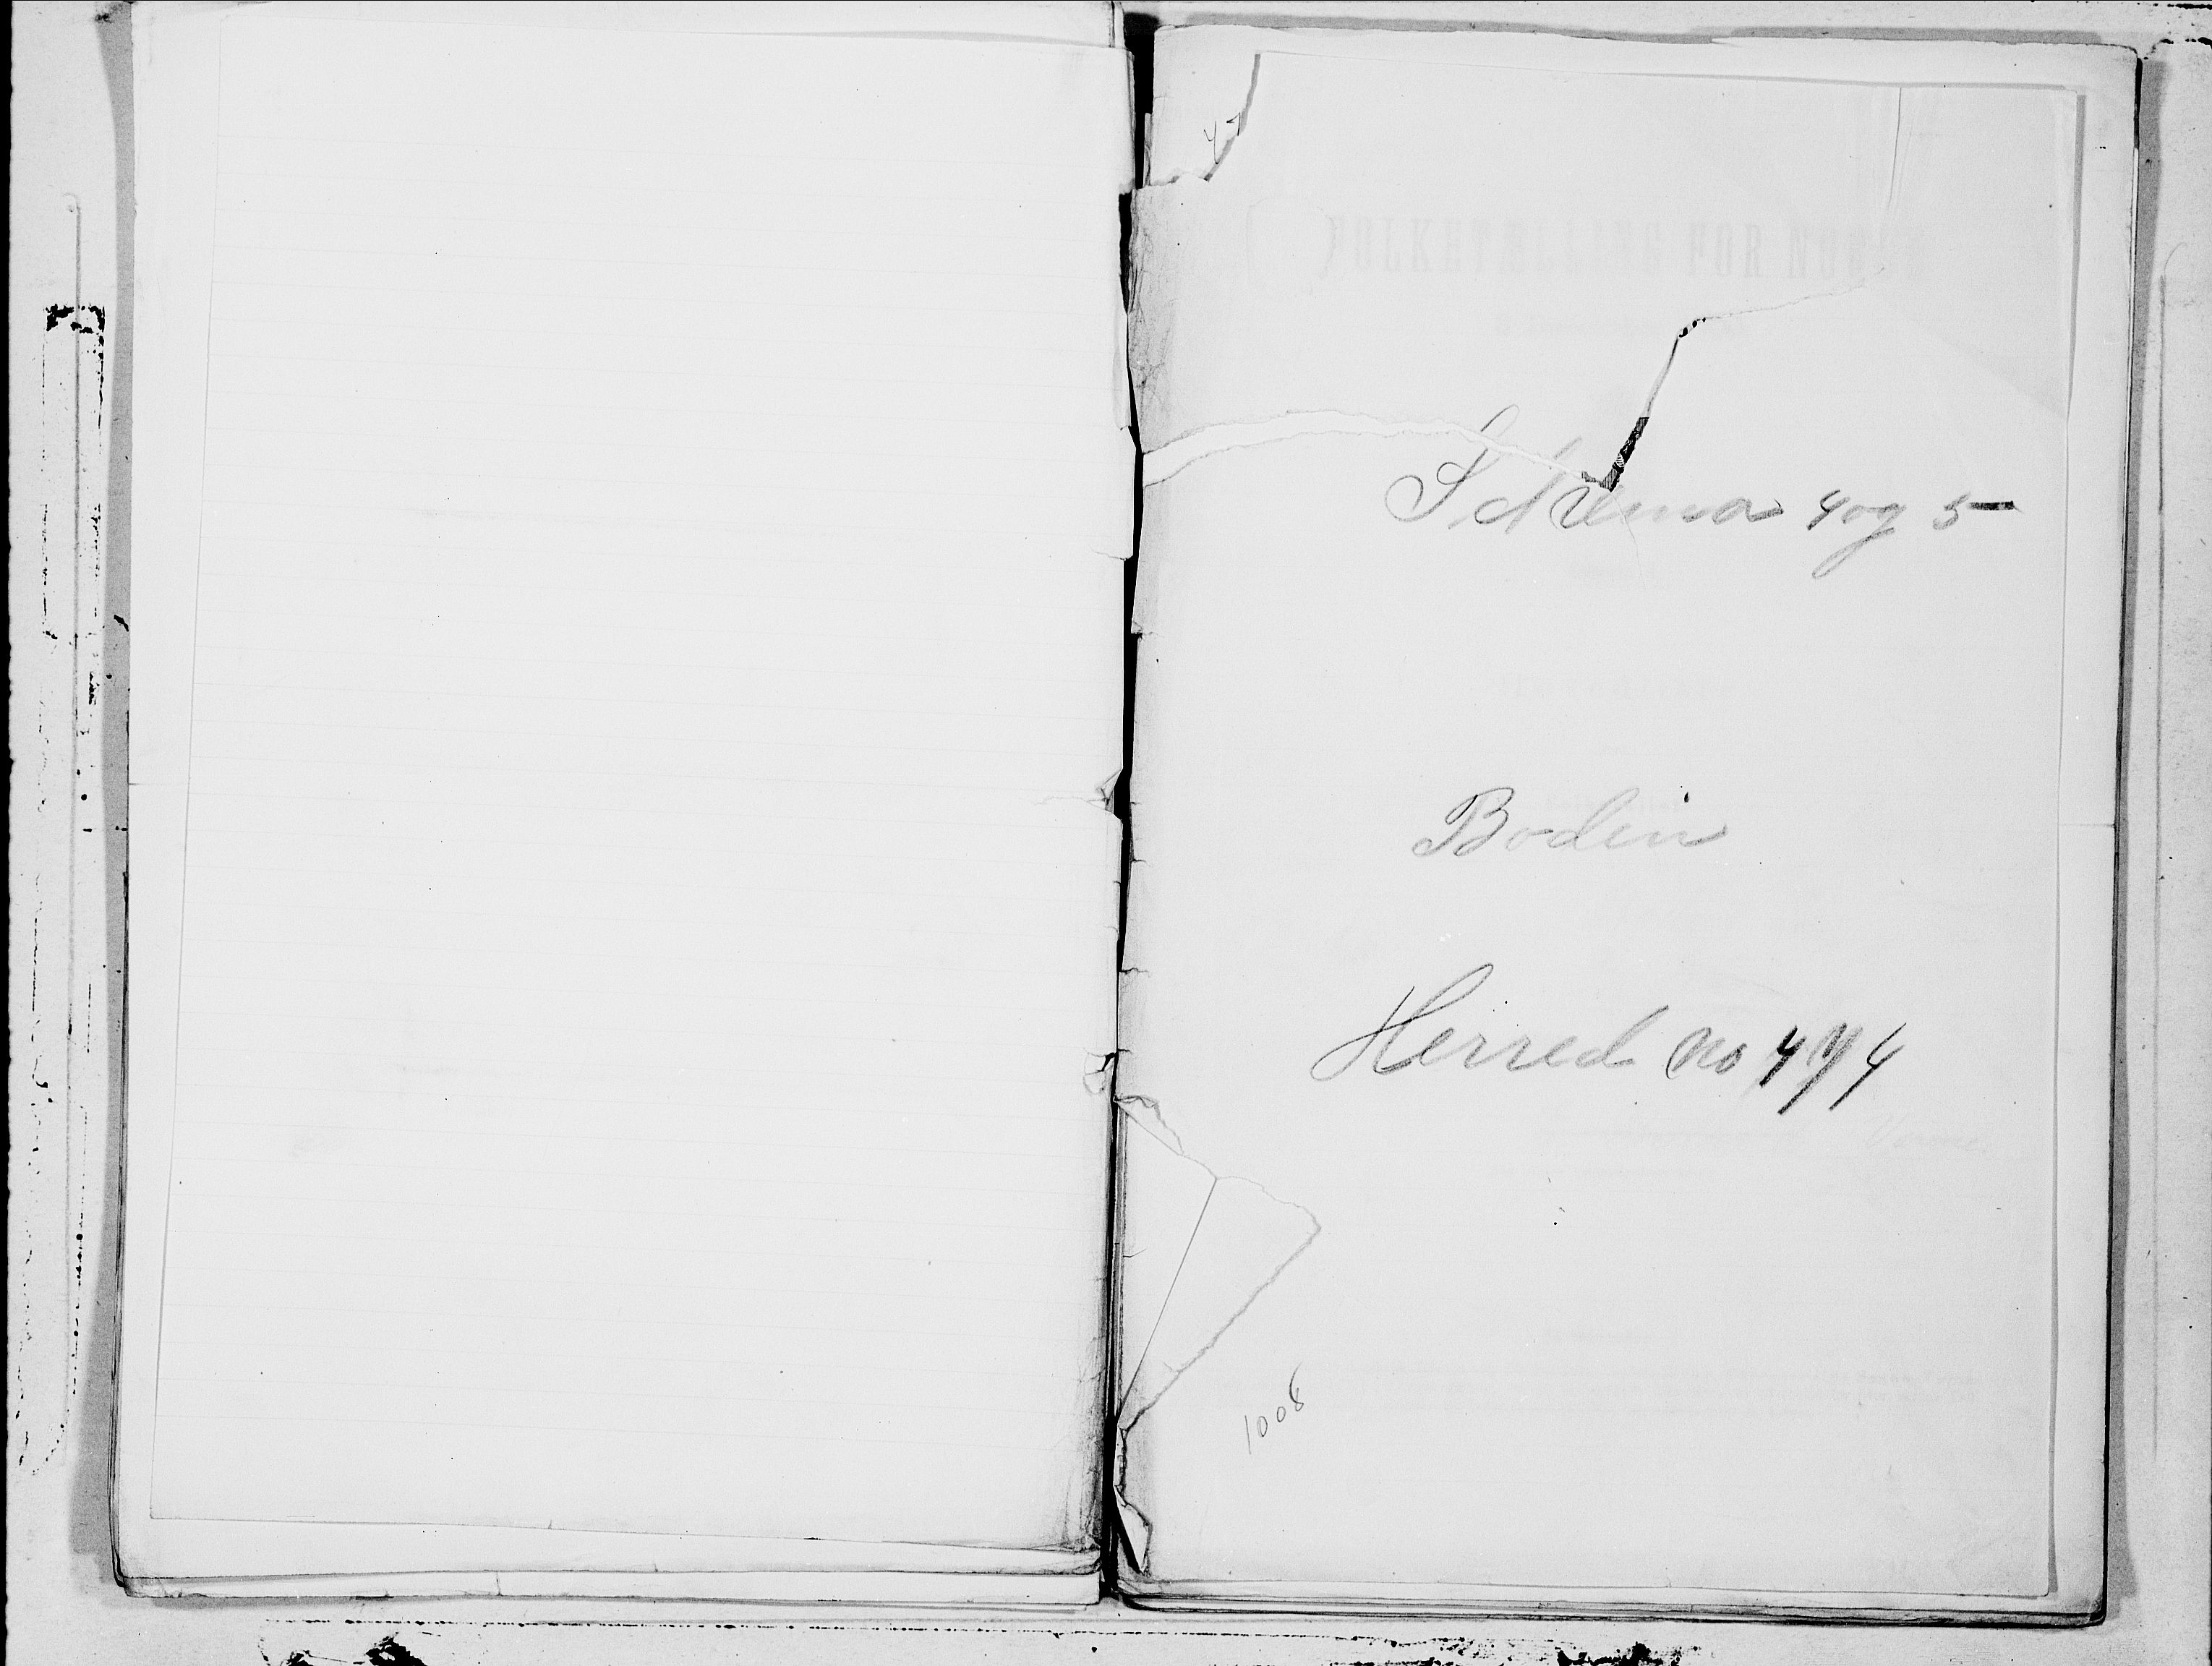 FOLKETÆLLING FOR NORGE
Schema 4 og 5
Bodin
Herred No 474
1008